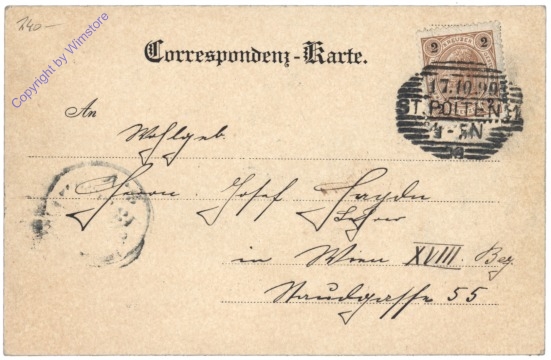 240.—
Copyright by Wimstore
Correspondenz-Karte.
2 KREUZER 2
17.10.99
ST. PÖLTEN 1
4-5N
An
Wohlgeb.
Herrn Josef Haydn
Lehrer
in Wien XVIII. Bez.
Staudgasse 55